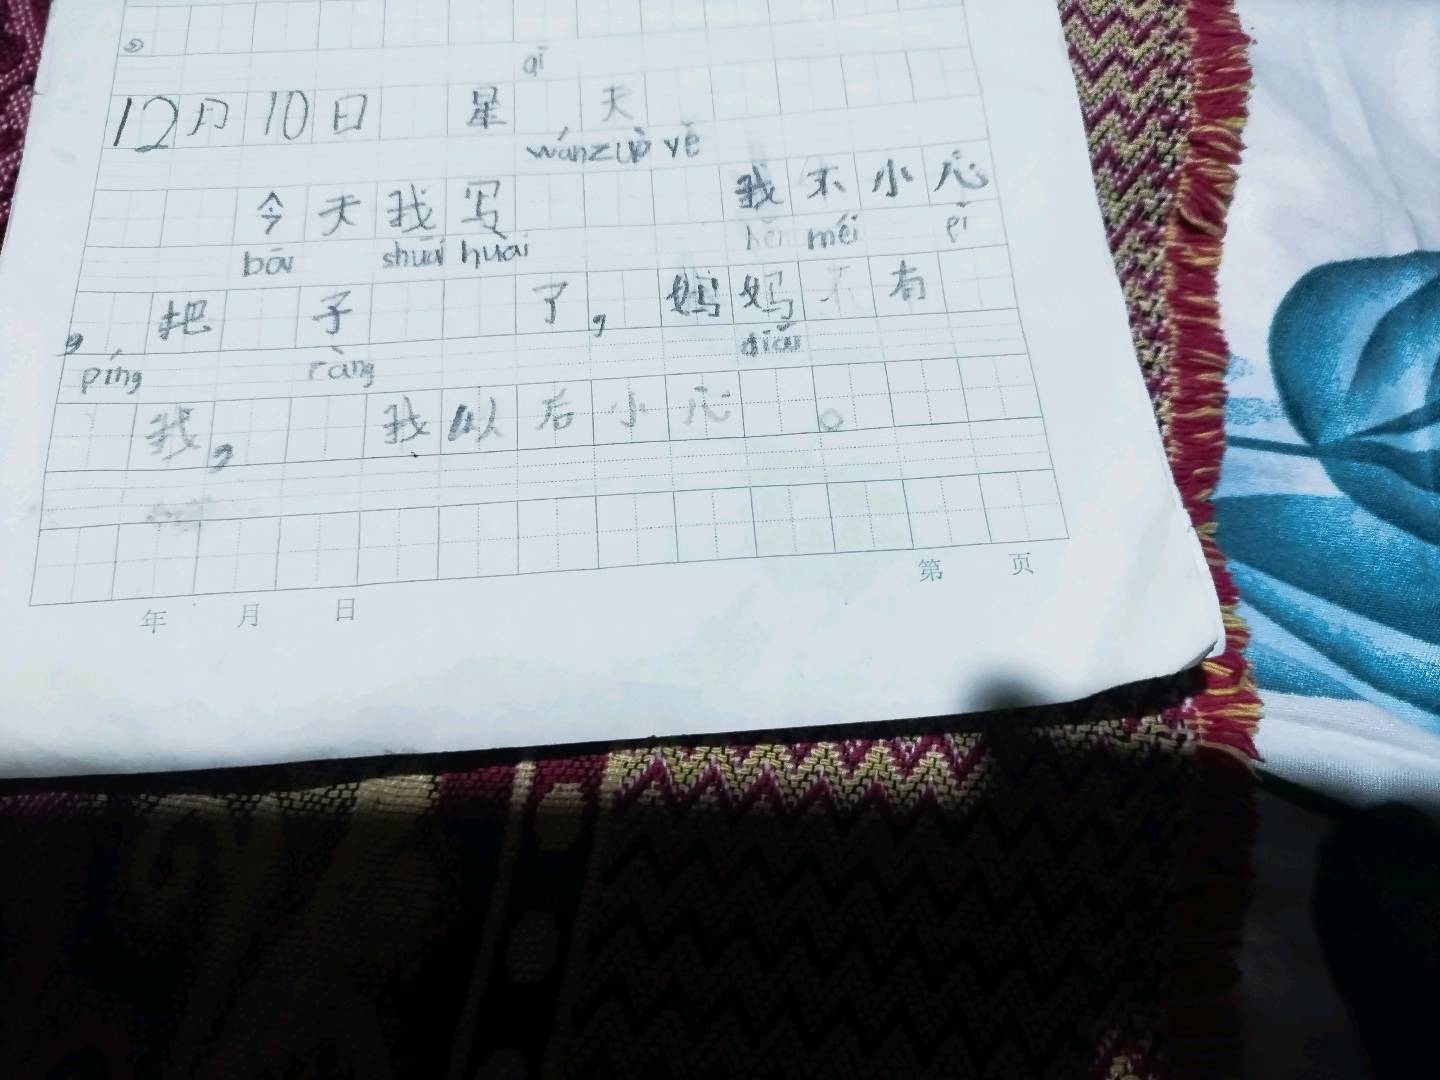 qī
12月10日 星 天
wánzuò yè
今天我写 我不小心
bāi shuāi huài méi pī
,把 子 了,妈妈 有
píng ràng diǎn
我, 我以后小心 。
年 月 日 第 页